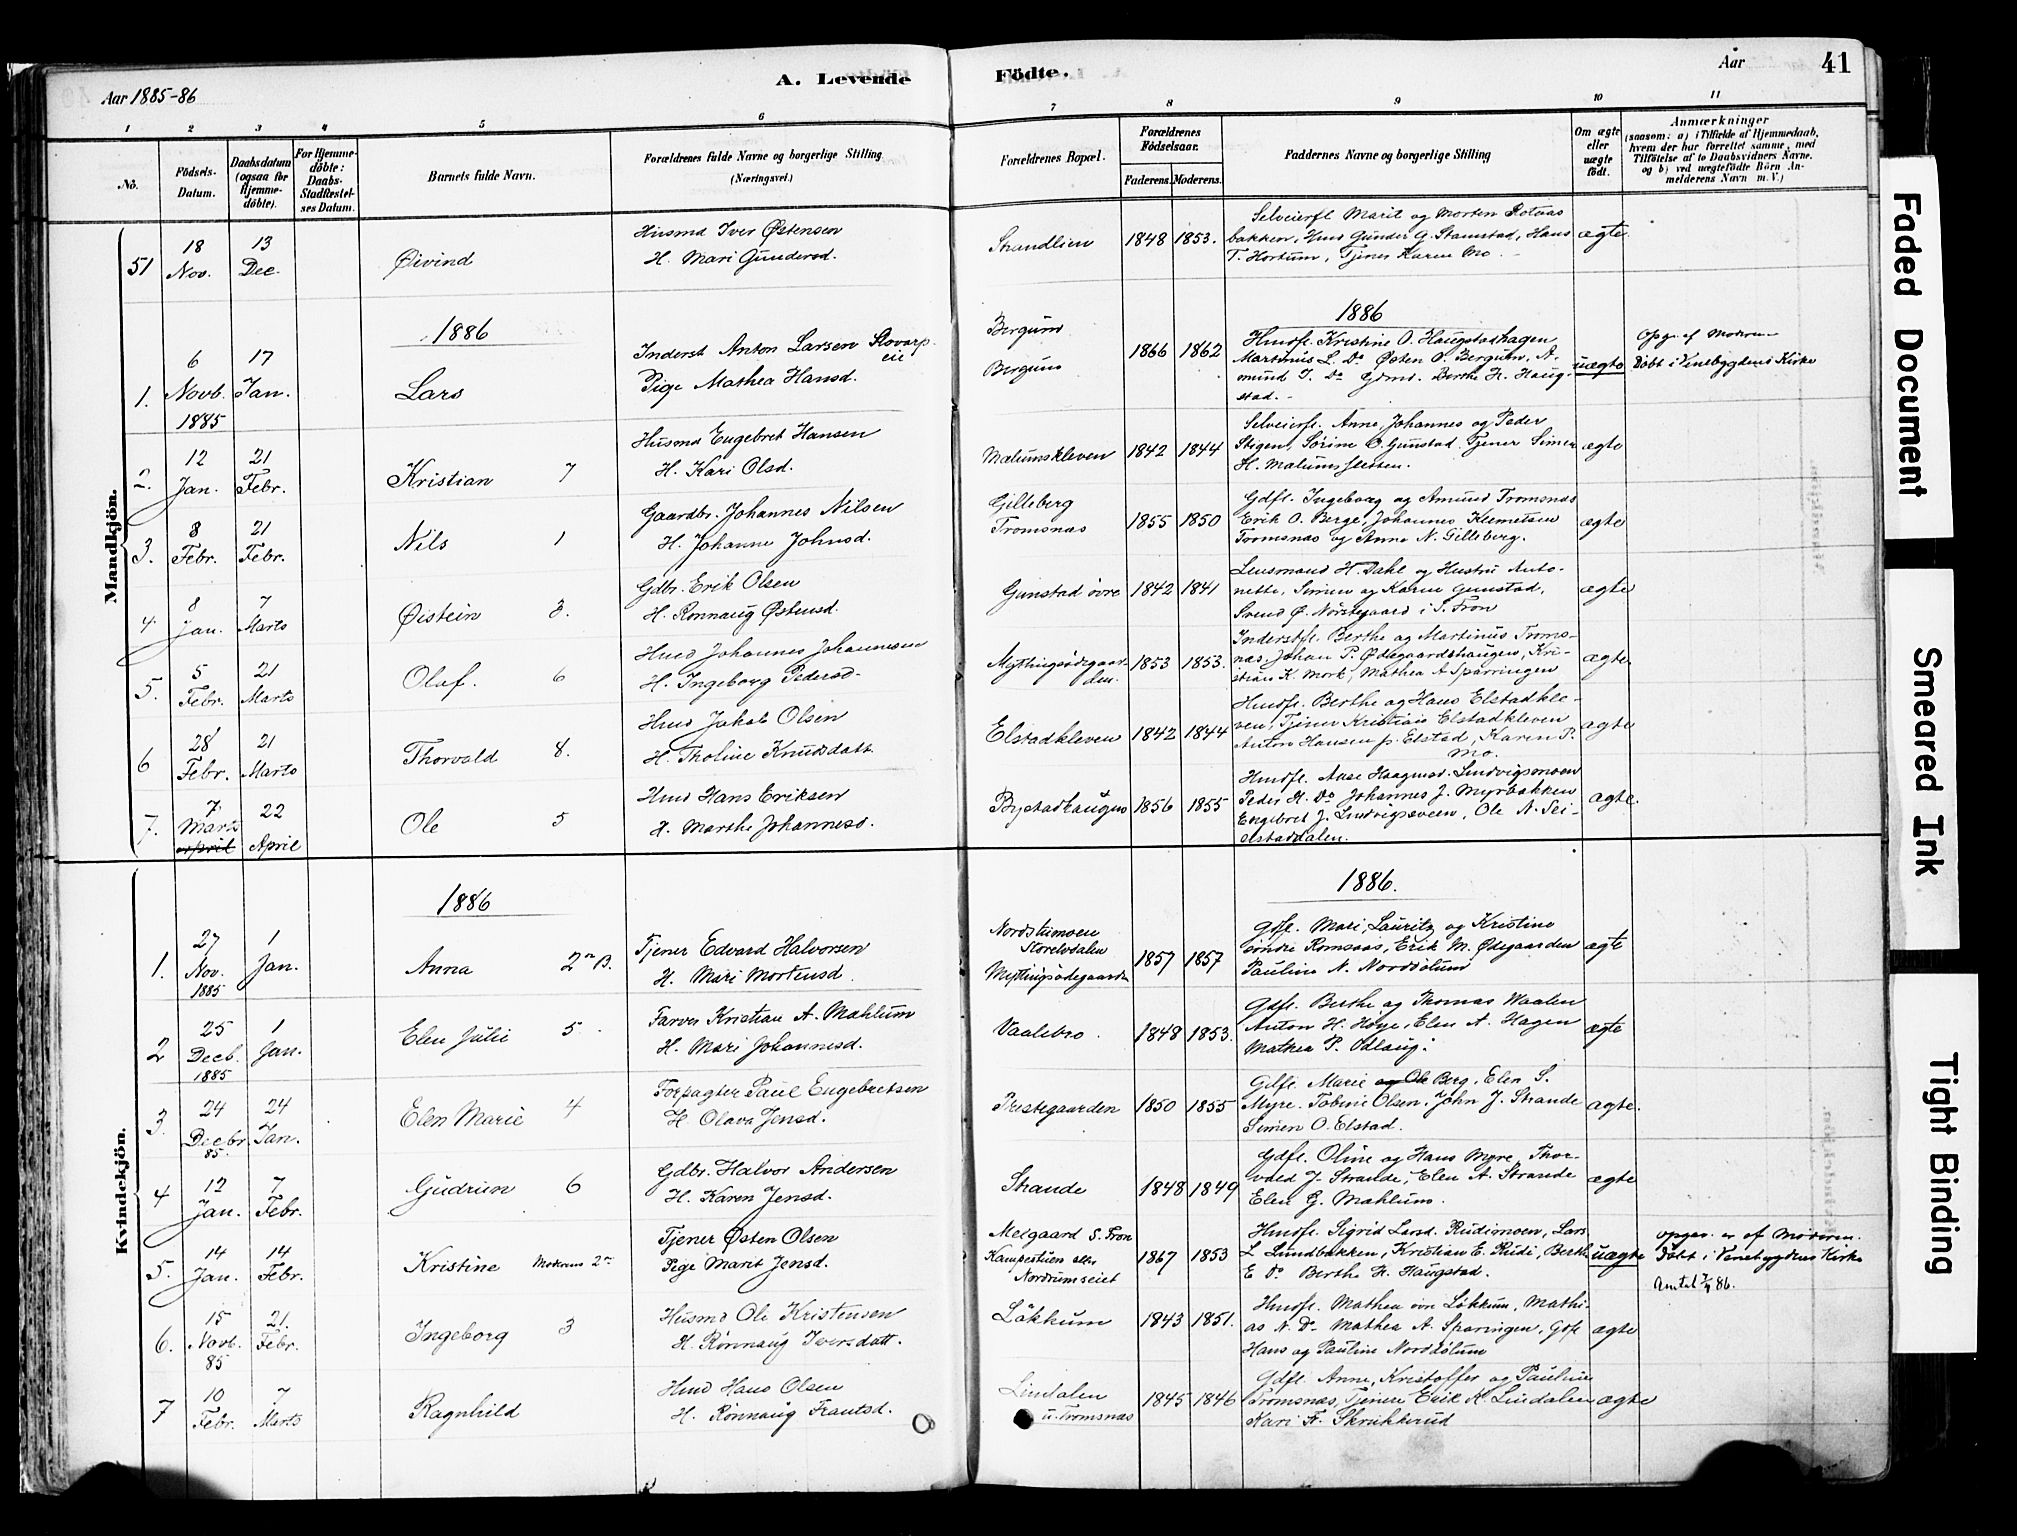 Aar 1885-86
A. Levende
Födte.
Aar
41
1 2 3 4 5 6 7 8 9 10 11
No.
Födsels-
Datum.
Daabsdatum
(ogsaa for
Hjemme-
döbte).
For Hjemme-
döbte:
Daabs-
Stadfæstel-
ses Datum.
Barnets fulde Navn.
Forældrenes fulde Navne og borgerlige Stilling
(Næringsvei.)
Forældrenes Bopæl.
Forældrenes
Födselsaar.
Faderens. Moderens.
Faddernes Navne og borgerlige Stilling
Om ægte
eller
uægte
födt.
Anmærkninger
(saasom: a) i Tilfælde af Hjemmedaab,
hvem der har forrettet samme, med
Tilföielse af to Daabsvidners Navne,
og b) ved uægtefödte Börn An-
melderens Navn m. V.)
Mandkjön.
51
18
Nov.
13
Dec.
Øivind
Husmd Iver Østensen
H. Mari Gundersd.
Strandlien
1848 1853.
Selveierfl. Marit og Morten Rotvas
bakken, Hmd Gunder G. Stamstad, Hans
T. Hortum, Tjener Karen Mo.
ægte.
1886
1886
1.
6
Novb.
1885
17
Jan.
Lars
Inderst Anton Larsen
eie
Pige Mathea Hansd.
Bergum
Bergum
1866 1862
Hmdfl. Kristine O. Haugstadhagen
Martinus L. Do Østen O. Bergum, A-
mund I. Do Gdmd. Berthe H. Haug-
stad.
uægte
Opgr. af Moderen
Døbt i Venebygdens Kirke
2.
12
Jan.
21
Febr.
Kristian 7
Husmd Engebret Hansen
H. Kari Olsd.
Mælumskleven
1842 1844
Selveierfl. Anne, Johannes og Peder
Stigen, Sørine O. Gunstad. Tjener Simen
H. Mælums
ægte
3.
8
Febr.
21
Febr.
Nils 1
Gaardbr. Johannes Nilsen
H. Johanne Johnsd.
Gilleberg
Tromsnæs
1855 1850
Gdfl. Ingeborg og Amund Tromsnæs
Erik O. Berge, Johannes Klemetsen
Tromsnæs og Anne N. Gilleberg.
ægte
4.
8
Jan.
7
Marts
Øistein 3.
Gdbr. Erik Olsen
H. Rønnaug Østensd.
Gunstad øvre
1842 1841
Lensmand H. Dahl og Hustru Anto-
nette, Simen og Karen Gunstad,
Svend Ø. Nørstegaard i S. Fron
ægte
5.
5
Febr.
21
Marts
Olaf. 6
Hmd Johannes Johannesen
H. Ingeborg Pedersd.
Mythingsødegaar-
den.
1853 1853.
Inderstfl. Berthe og Martinus Troms-
næs, Johan P. Ødegaardshaugen, Kri-
stian K. Mork, Mathea A Sparringen
ægte.
6
28
Febr.
21
Marts
Thorvald 8.
Hmd Jakob Olsen
H. Tholine Knudsdatt.
Elstadkleven
1842 1844
Hmdfl. Berthe og Hans Elstadkle-
ven, Tjener Kristian Elstadkleven
Anton Hansen p. Elstad, Karen P.
Mo.
ægte
7.
7
Marts
april
22
April
Ole 5
Hmd Hans Eriksen
H. Marthe Johannesd.
Brystadhaugen
1856 1855
Hmdfl. Aase Haagensd. Lindvigsmoen
Peder H. Do Johannes J. Myrbakken
Engebret J. Lindvigsveen, Ole A. Sei-
elstaddalen.
ægte.
Kvindekjön.
1886
1886.
1.
27
Nov.
1885
1
Jan.
Anna 2n B.
Tjener Edvard Halvorsen
H. Mari Mortensd.
Nordstumoen
Storelvdalen
Mythingsødegaarden
1857 1857
Gdfl. Mari, Lauritz og Kristine
søndre Romsaas, Erik M. Ødegaarden
Pauline N. Norddølum
ægte
2
25
Decb.
1885
1
Jan.
Elen Julie 5
Farver Kristian A. Mæhlum
H. Mari Johannesd.
Vaalebro.
1848 1853.
Gdfl. Berthe og Thomas Waalen
Anton H. Høye, Elen A. Hagen
Mathea P. Odlaug.
ægte
3.
24
Decbr
85.
24
Jan.
Elen Marie 4
Forpagter Paul Engebretsen
H. Olava Jensd.
Præstegaarden
1850 1855
Gdfl. Marie og Ole Berg, Elen S.
Myre. Tobine Olsen, John J. Strande
Simen O. Elstad.
ægte.
4
12
Jan.
7
Febr.
Gudrun 6
Gdbr. Halvor Andersen
H. Karen Jensd.
Strande
1848 1849
Gdfl. Oline og Hans Myre, Thor-
vald J. Strande, Elen A. Strande
Elen G. Mæhlum.
ægte
5.
14
Jan.
14
Febr.
Kristine Moderens 2n
Tjener Østen Olsen
Pige Marit Jensd.
Melgaard S. Fron
Kampestuen eller
Nordrumseiet
1867 1853
Hmdfl. Sigrid Larsd. Rudimoen, Lars
L Lundbakken, Kristian E. Rudi, Berthe
E Do Berthe H. Haugstad.
uægte
opgr. er af Moderen.
Døbt i Venebygdens Kirke
Amtet 7/4 86.
6.
15
Novb.
85
21.
Febr.
Ingeborg 3
Husmd Ole Kristensen
H. Rønnaug Iversdatt.
Løkkum
1843 1851.
Hmdfl. Mathea øvre Løkkum, Mathi-
as N. Do Mathea A. Sparingen, Gdfl
Hans og Pauline Norddølum
ægte
7
10
Febr.
7
Marts
Ragnhild
Hmd Hans Olsen
H. Rønnaug Frantsd.
Lindalen
u. Tromsnæs
1845 1846
Gdfl. Anne, Kristoffer og Pauline
Tromsnæs, Tjenere Erik A. Lindalen
Kari F. Skrukkerud
ægte
Faded Document
Smeared Ink
Tight Binding